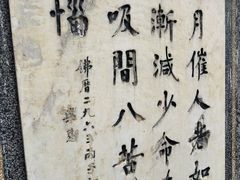 月催人老如
漸減少命
吸間八苦
惱
佛曆二九六三